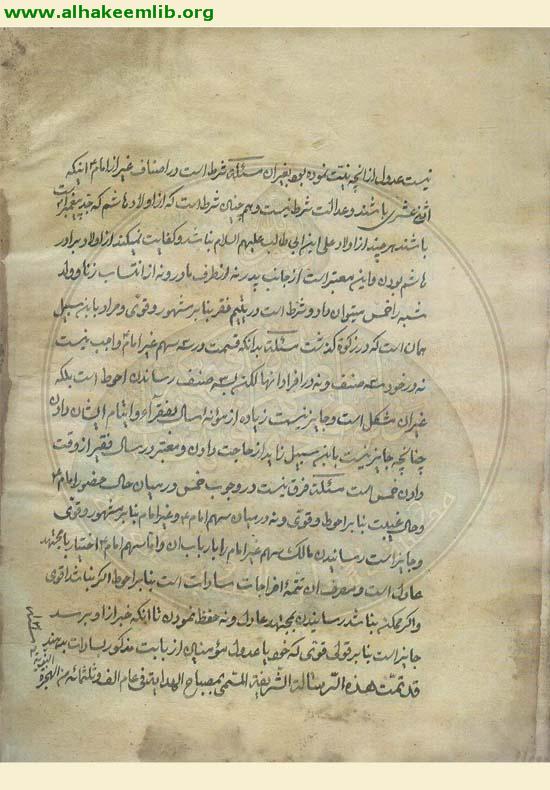 www.alhakeemlib.org
نیست عدول از انچه نیت نموده بود بغیر ان مسئلة شرط است در اصناف غیر از امام ٤ اینکه
اثنی عشری باشند و عدالت شرط نیست و هم چنین شرط است که از اولاد هاشم که جد پیغمبر است
باشند هر چند از اولاد علی ابن ابی طالب علیهم السلام نباشد و کفایت نمیکند از اولاد برادر
هاشم بودن و این معتبر است از جانب پدر نه از طرف مادر و نه از انتساب زنا و ولد
شبه را خمس میتوان داد و شرط است در یتیم فقر بنا بر مشهور و قوی و مراد بابن سبیل
همان است که در زکوة گذشت مسئلة بدانکه قسمت در سه سهم غیر امام ٤ واجب نیست
نه در خود سه صنف و نه در افراد انها لکن بسه صنف رساندن احوط است بلکه
غیر ان مشکل است و جایز نیست زیاده از مؤنه سال بفقراء و ایتام ایشان دادن
چنانچه جایز نیست بابن سبیل زاید از حاجت دادن و معتبر در سال فقیر از وقت
دادن خمس است مسئلة فرق نیست در وجوب خمس در میان حال حضور امام ٤
و حال غیبت بنا بر احوط و قوی و نه در میان سهم امام ٤ و غیر امام بنا بر مشهور و قوی
و جایز است رساندن مالک سهم غیر امام را بارباب ان و اما سهم امام ٤ اختیار با مجتهد
عادل است و مصرف ان تتمهٔ اخراجات سادات است بنا بر احوط اگر نباشد اقوی
و اگر ممکن نباشد رسانیدن بمجتهد عادل و نه حفظ نمودن تا انکه خبر از او برسد
جایز است بنا بر قولی قوی که خود یا عدول مؤمنین از بابت مذکور بسادات بدهند
قد تمّت هذه الرسالة الشریفة المسمی بمصباح الهدایة فی عام الف و ثلثمائه من الهجرة
النبویة